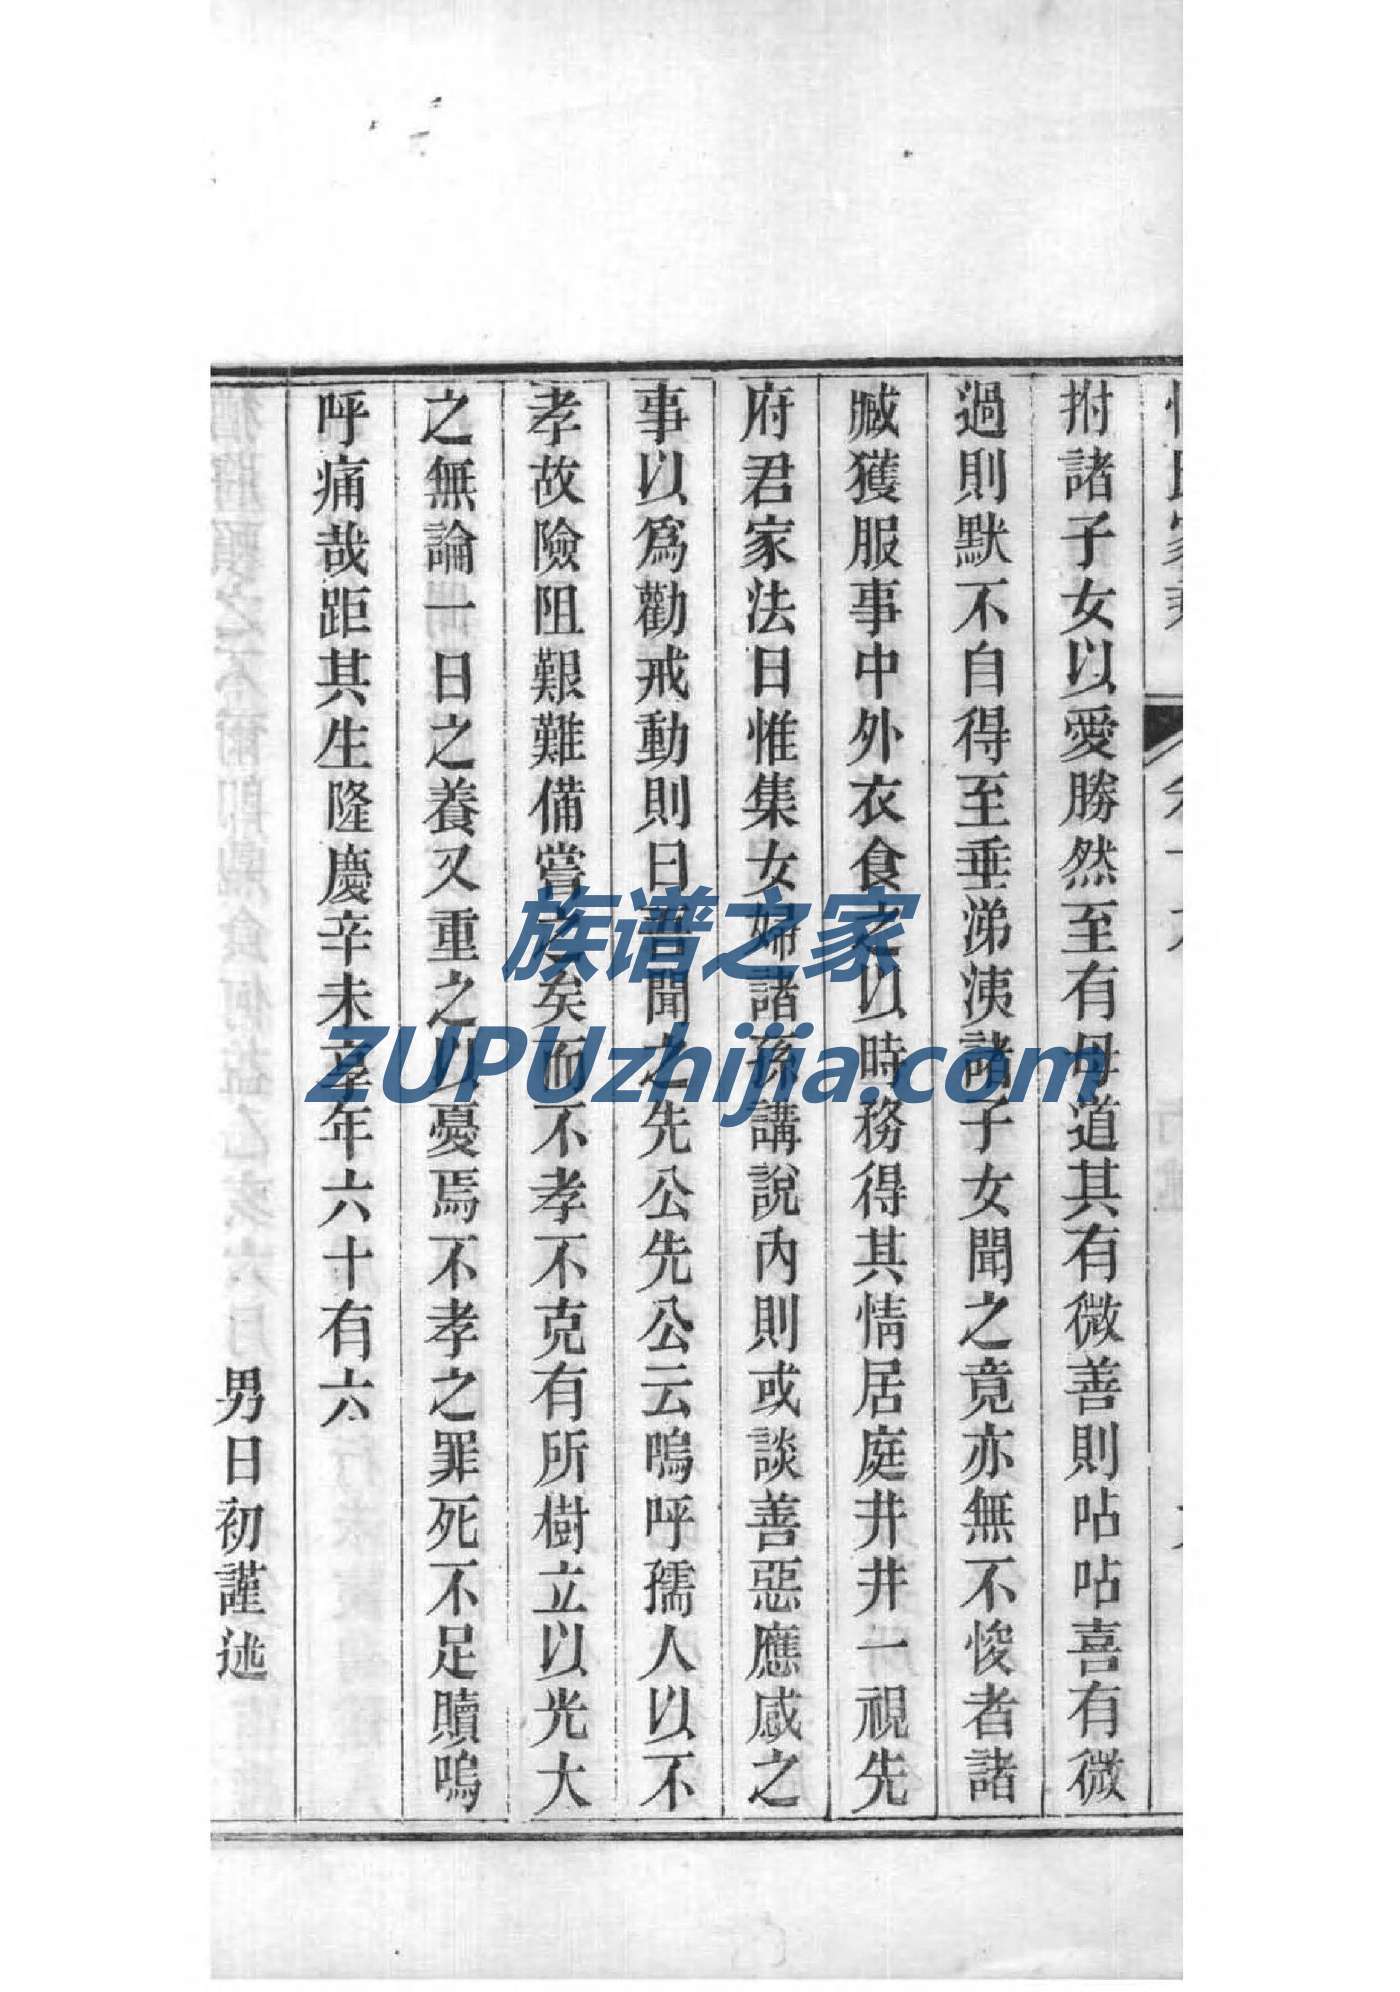 拊諸子女以愛勝然至有母道其有微善則呫呫喜有微
過則默不自得至垂涕洟諸子女聞之竟亦無不悛者諸
臧獲服事中外衣食之以時務得其情居庭井井一視先
府君家法日惟集女婦諸孫講說內則或談善惡應感之
事以爲勸戒動則曰吾聞之先公先公云嗚呼孺人以不
孝故險阻艱難備嘗之矣而不孝不克有所樹立以光大
之無論一日之養又重之以憂焉不孝之罪死不足贖嗚
呼痛哉距其生隆慶辛未享年六十有六
男日初謹述
族谱之家
ZUPUzhijia.com